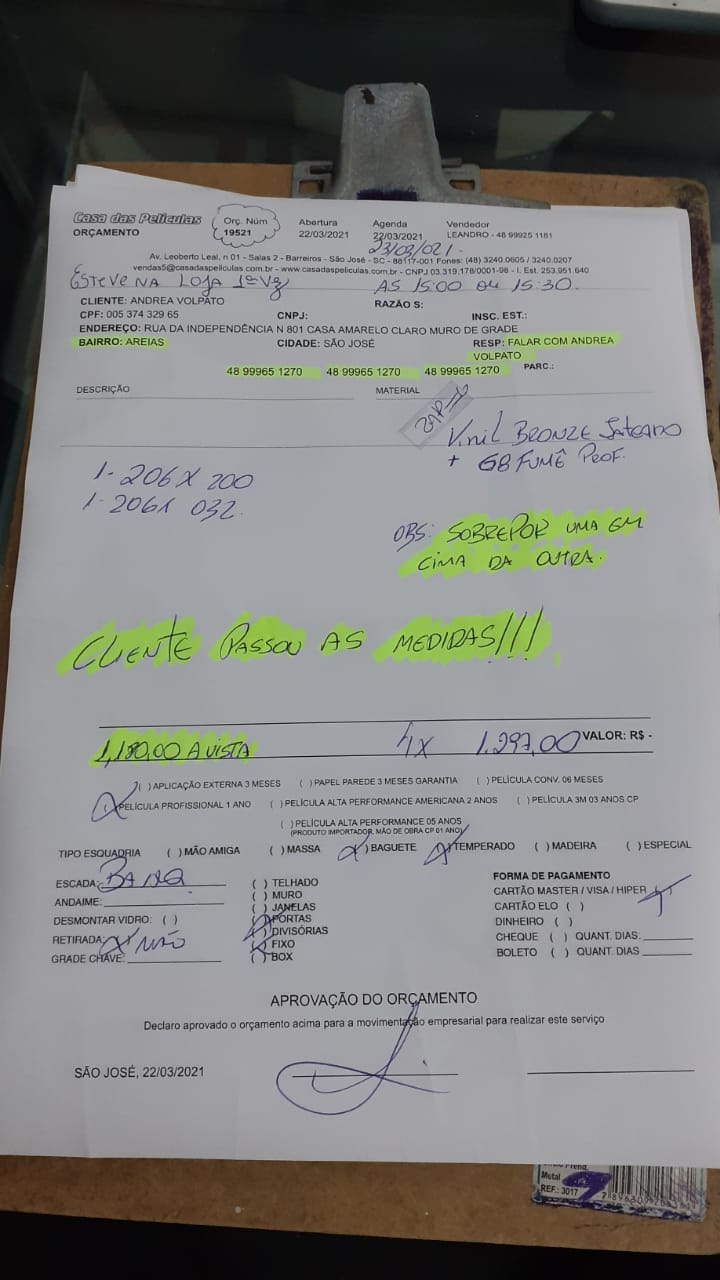 Casa das Películas
ORÇAMENTO
Orç. Núm
19521
Abertura
22/03/2021
Agenda
22/03/2021
Vendedor
LEANDRO - 48 99925 1181
23/03/021-
Av. Leoberto Leal, n 01 - Salas 2 - Barreiros - São José - SC - 88117-001 Fones: (48) 3240.0605 / 3240.0207
vendas5@casadaspeliculas.com.br - www.casadaspeliculas.com.br - CNPJ 03.319.178/0001-98 - I. Est. 253.951.640
ESTEVE NA LOJA 1ª VZ
AS 15:00 ou 15:30.
CLIENTE: ANDREA VOLPATO
RAZÃO S:
CPF: 005 374 329 65
CNPJ:
INSC. EST.:
ENDEREÇO: RUA DA INDEPENDÊNCIA N 801 CASA AMARELO CLARO MURO DE GRADE
BAIRRO: AREIAS
CIDADE: SÃO JOSÉ
RESP: FALAR COM ANDREA
VOLPATO
48 99965 1270 48 99965 1270 48 99965 1270
PARC.:
DESCRIÇÃO
MATERIAL
Vinil BRONZE Jateado
+ GB FUMÊ PROF.
1- 206 X 200
1- 206 X 032
OBS: SOBREPOR UMA EM
CIMA DA OUTRA.
CLIENTE PASSOU AS MEDIDAS!!!
1,180,00 A VISTA
4X 1.297,00
VALOR: R$ -
( ) APLICAÇÃO EXTERNA 3 MESES ( ) PAPEL PAREDE 3 MESES GARANTIA ( ) PELÍCULA CONV. 06 MESES
(X) PELÍCULA PROFISSIONAL 1 ANO ( ) PELÍCULA ALTA PERFORMANCE AMERICANA 2 ANOS ( ) PELÍCULA 3M 03 ANOS CP
( ) PELÍCULA ALTA PERFORMANCE 05 ANOS
(PRODUTO IMPORTADOR, MÃO DE OBRA CP 01 ANO)
TIPO ESQUADRIA ( ) MÃO AMIGA ( ) MASSA (X) BAGUETE (X) TEMPERADO ( ) MADEIRA ( ) ESPECIAL
ESCADA:
ANDAIME:
DESMONTAR VIDRO: ( )
RETIRADA: X NÃO
GRADE CHAVE:
( ) TELHADO
( ) MURO
( ) JANELAS
(X) PORTAS
(X) DIVISÓRIAS
(X) FIXO
( ) BOX
FORMA DE PAGAMENTO
CARTÃO MASTER / VISA / HIPER (X)
CARTÃO ELO ( )
DINHEIRO ( )
CHEQUE ( ) QUANT. DIAS:
BOLETO ( ) QUANT. DIAS
APROVAÇÃO DO ORÇAMENTO
Declaro aprovado o orçamento acima para a movimentação empresarial para realizar este serviço
SÃO JOSÉ, 22/03/2021
Metal
REF.: 3017